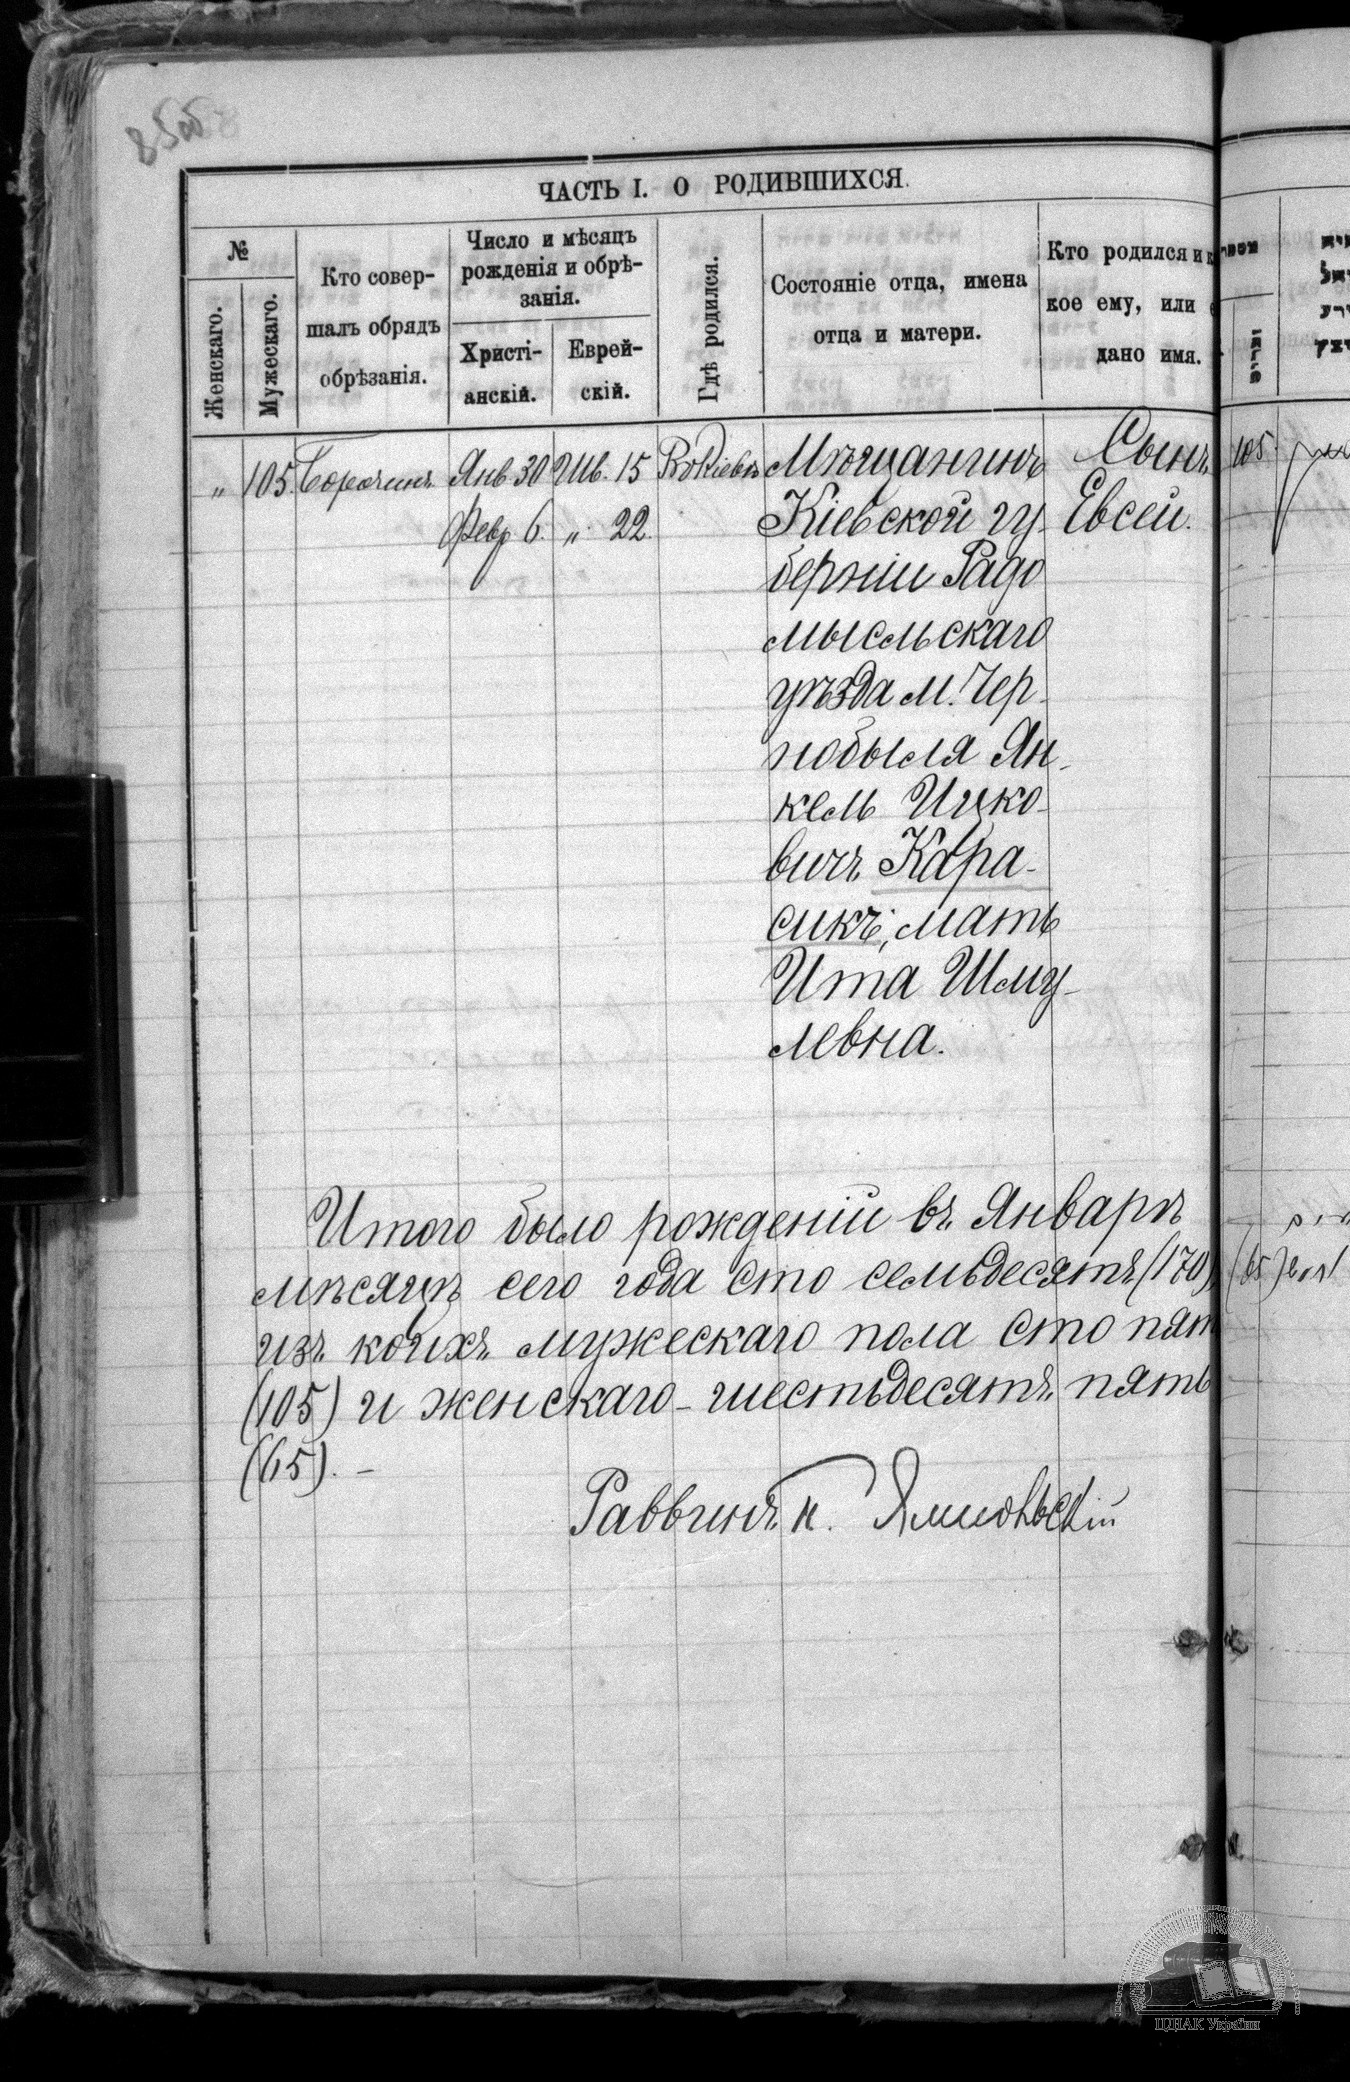 ЧАСТЬ I. О РОДИВШИХСЯ.
№
Женскаго.
Мужескаго.
Кто совер-
шалъ обрядъ
обрѣзанія.
Число и мѣсяцъ
рожденія и обрѣ-
занія.
Христі-
анскій.
Еврей-
скій.
Гдѣ родился.
Состояніе отца, имена
отца и матери.
Кто родился и к
кое ему, или е
дано имя.
„ 105. Янв 30 Шв. 15 В Кіевѣ Мѣщанинъ Сынъ
Февр 6. „ 22. Кіевской гу- Евсей.
берніи Радо
мысльскаго
уѣзда м. Чер-
нобыля Ян-
кель Ицко-
вичъ Кара-
сикъ, мать
Ита Шму-
левна.
Итого было рожденій въ Январѣ
мѣсяцѣ сего года сто семьдесятъ (170),
изъ коихъ мужескаго пола сто пят
(105) и женскаго - шестьдесятъ пять
(65). -
Раввинъ
105.
ЦДІАК України